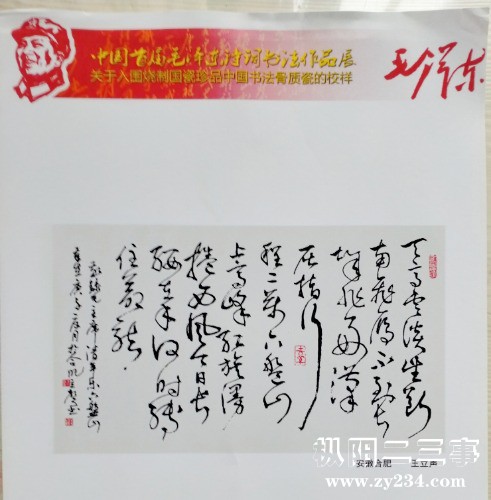 中国首届毛泽东诗词书法作品展
关于入围烧制国瓷珍品中国书法骨质瓷的校样
毛泽东
天高云淡望断
南飞雁不到长
城非好汉
屈指行
程二万六盘山
上高峰红旗漫
捲西风今日长
缨在手何时缚
住苍龙
毛主席清平乐六盘山
安徽合肥 王立声
枞阳二三事
www.zy234.com